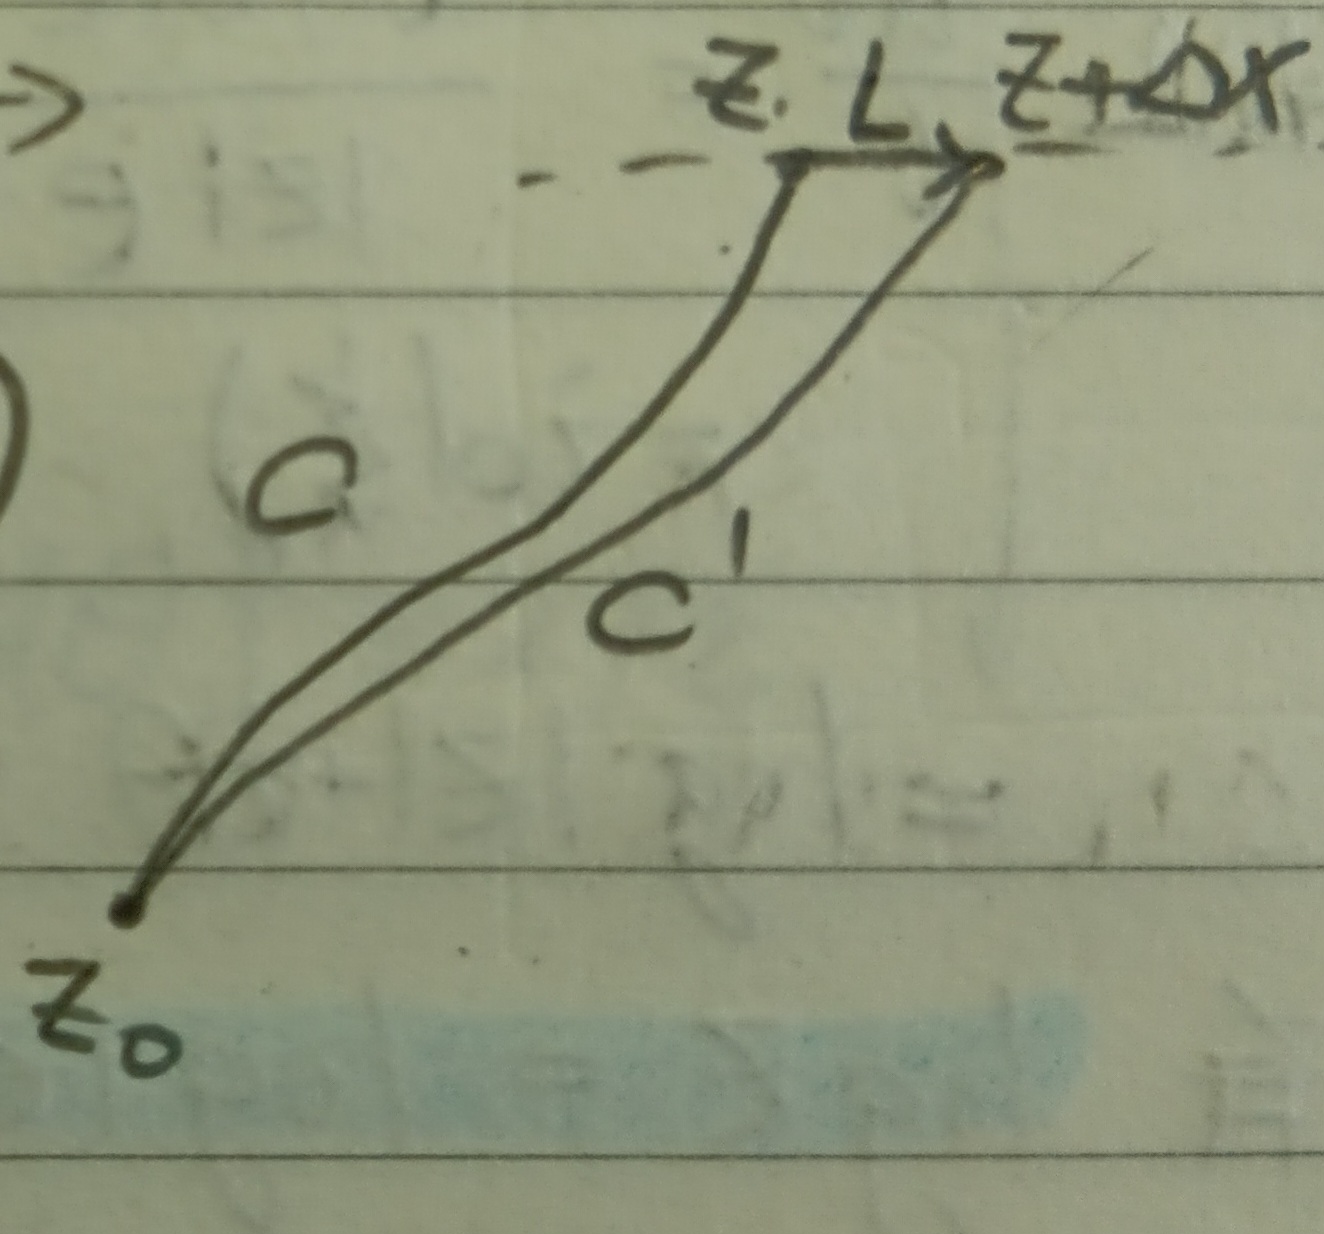 Z L Z+Δx
C
C'
Z₀